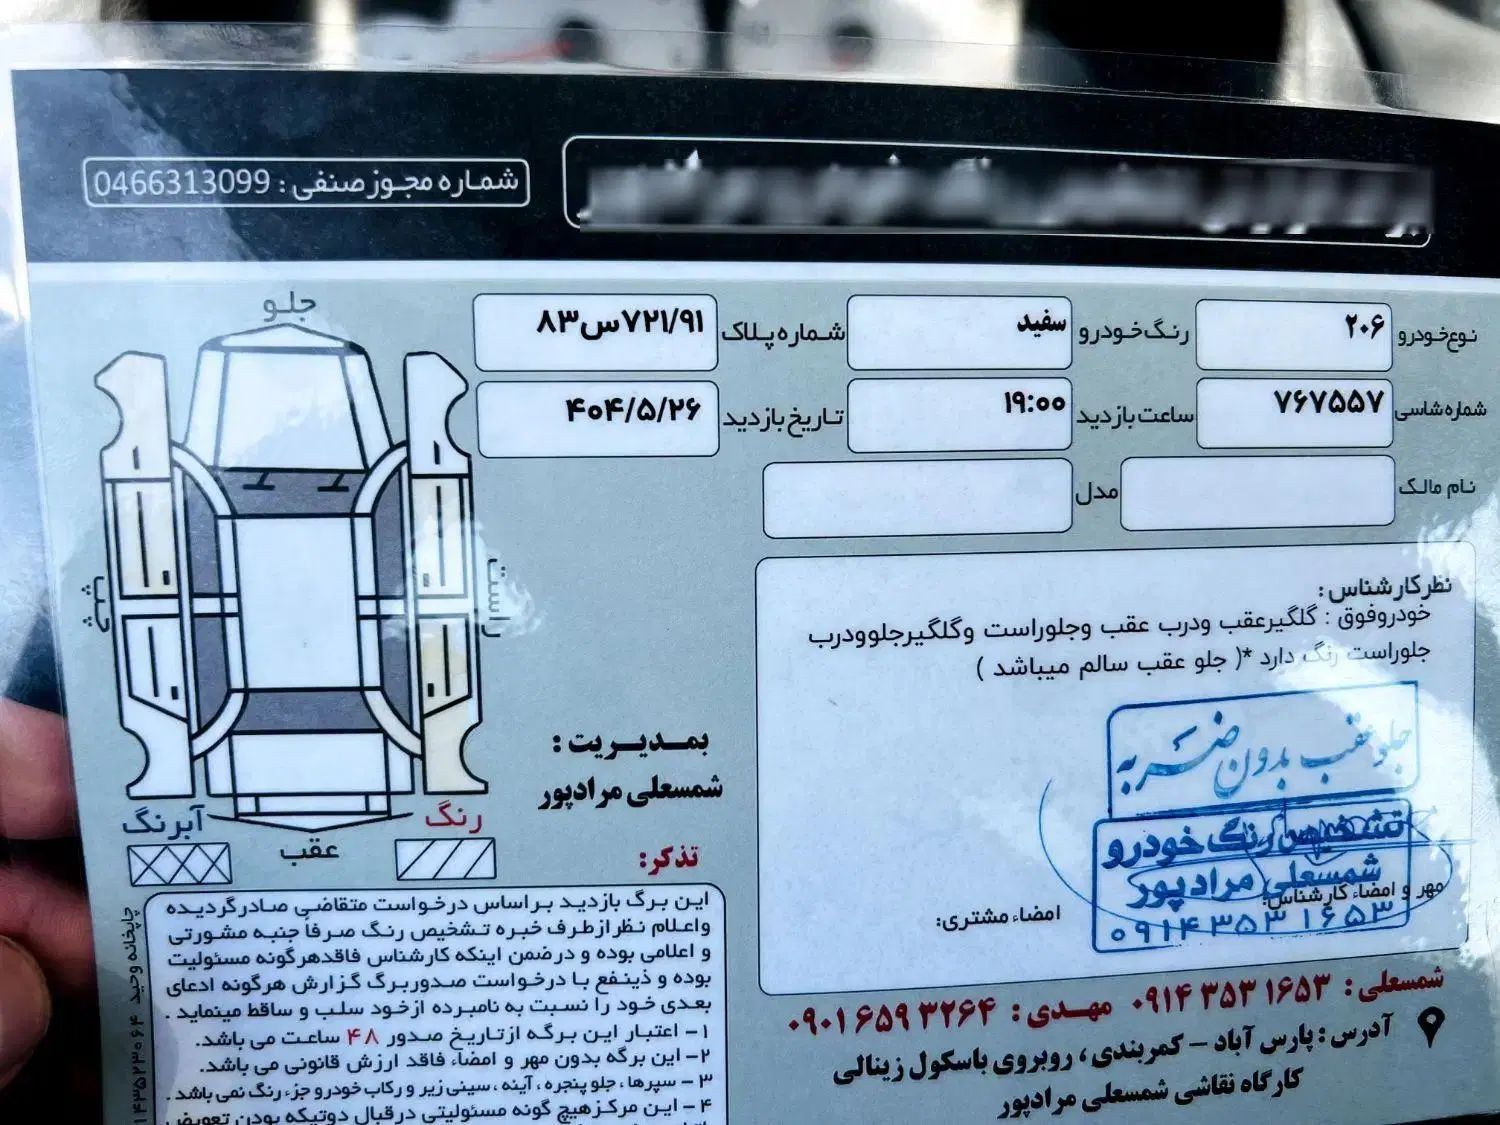 شماره مجوز صنفی : 0466313099
نوع خودرو ۲۰۶ رنگ خودرو سفید شماره پلاک ۷۲۱/۹۱س۸۳
شماره شاسی ۷۶۷۵۵۷ ساعت بازدید ۱۹:۰۰ تاریخ بازدید ۴۰۴/۵/۲۶
نام مالک مدل
جلو
چپ
راست
عقب
آبرنگ
رنگ
نظرکارشناس :
خودروفوق : گلگیرعقب ودرب عقب وجلوراست وگلگیرجلوودرب
جلوراست رنگ دارد *( جلو عقب سالم میباشد )
جلو عقب بدون ضربه
تشخیص رنگ خودرو
شمسعلی مرادپور
۰۹۱۴۳۵۳۱۶۵۳
مهر و امضاء کارشناس:
امضاء مشتری:
بمدیریت :
شمسعلی مرادپور
تذکر:
این برگ بازدید براساس درخواست متقاضی صادرگردیده
واعلام نظرازطرف خبره تشخیص رنگ صرفاً جنبه مشورتی
و اعلامی بوده و درضمن اینکه کارشناس فاقدهرگونه مسئولیت
بوده و ذینفع با درخواست صدوربرگ گزارش هرگونه ادعای
بعدی خود را نسبت به نامبرده ازخود سلب و ساقط مینماید .
۱- اعتبار این برگه ازتاریخ صدور ۴۸ ساعت می باشد.
۲- این برگه بدون مهر و امضاء فاقد ارزش قانونی می باشد.
۳- سپرها ، جلو پنجره ، آینه ، سینی زیر و رکاب خودرو جزء رنگ نمی باشد .
۴- این مرکزهیچ گونه مسئولیتی درقبال دوتیکه بودن تعویض
شمسعلی : ۰۹۱۴۳۵۳۱۶۵۳ مهدی : ۰۹۰۱۶۵۹۳۲۶۴
آدرس : پارس آباد - کمربندی ، روبروی باسکول زینالی
کارگاه نقاشی شمسعلی مرادپور
چاپخانه وحید